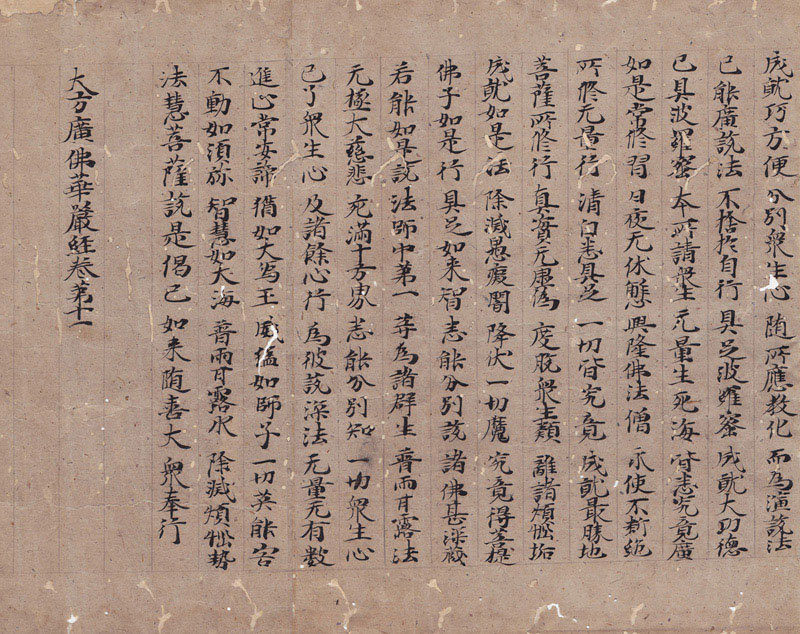 成就巧方便 分別衆生心 随所應教化 而為演說法
已能廣說法 不捨於自行 具足波羅蜜 成就大功德
已具波羅蜜 本所請衆生 无量生死海 皆悉究竟廣
如是常修習 日夜无休懈 興隆佛法僧 永使不斷絶
所修无量行 清白悉具足 一切皆究竟 成就最勝地
菩薩所修行 真實无虛偽 度脱衆生類 離諸煩惱垢
成就如是法 除滅愚癡闇 降伏一切魔 究竟得菩提
佛子如是行 具足如来智 悉能分別說 諸佛甚深藏
若能如是說 法師中第一 等為諸群生 普雨甘露法
无極大慈悲 充滿十方界 悉能分別知 一切衆生心
已了衆生心 及諸餘心行 為彼說深法 无量无有数
進止常安諦 猶如大象王 威猛如師子 一切莫能害
不動如須弥 智慧如大海 普雨甘露水 除滅煩惱熱
法慧菩薩說是偈已 如来随喜大衆奉行
大方廣佛華嚴經卷第十一